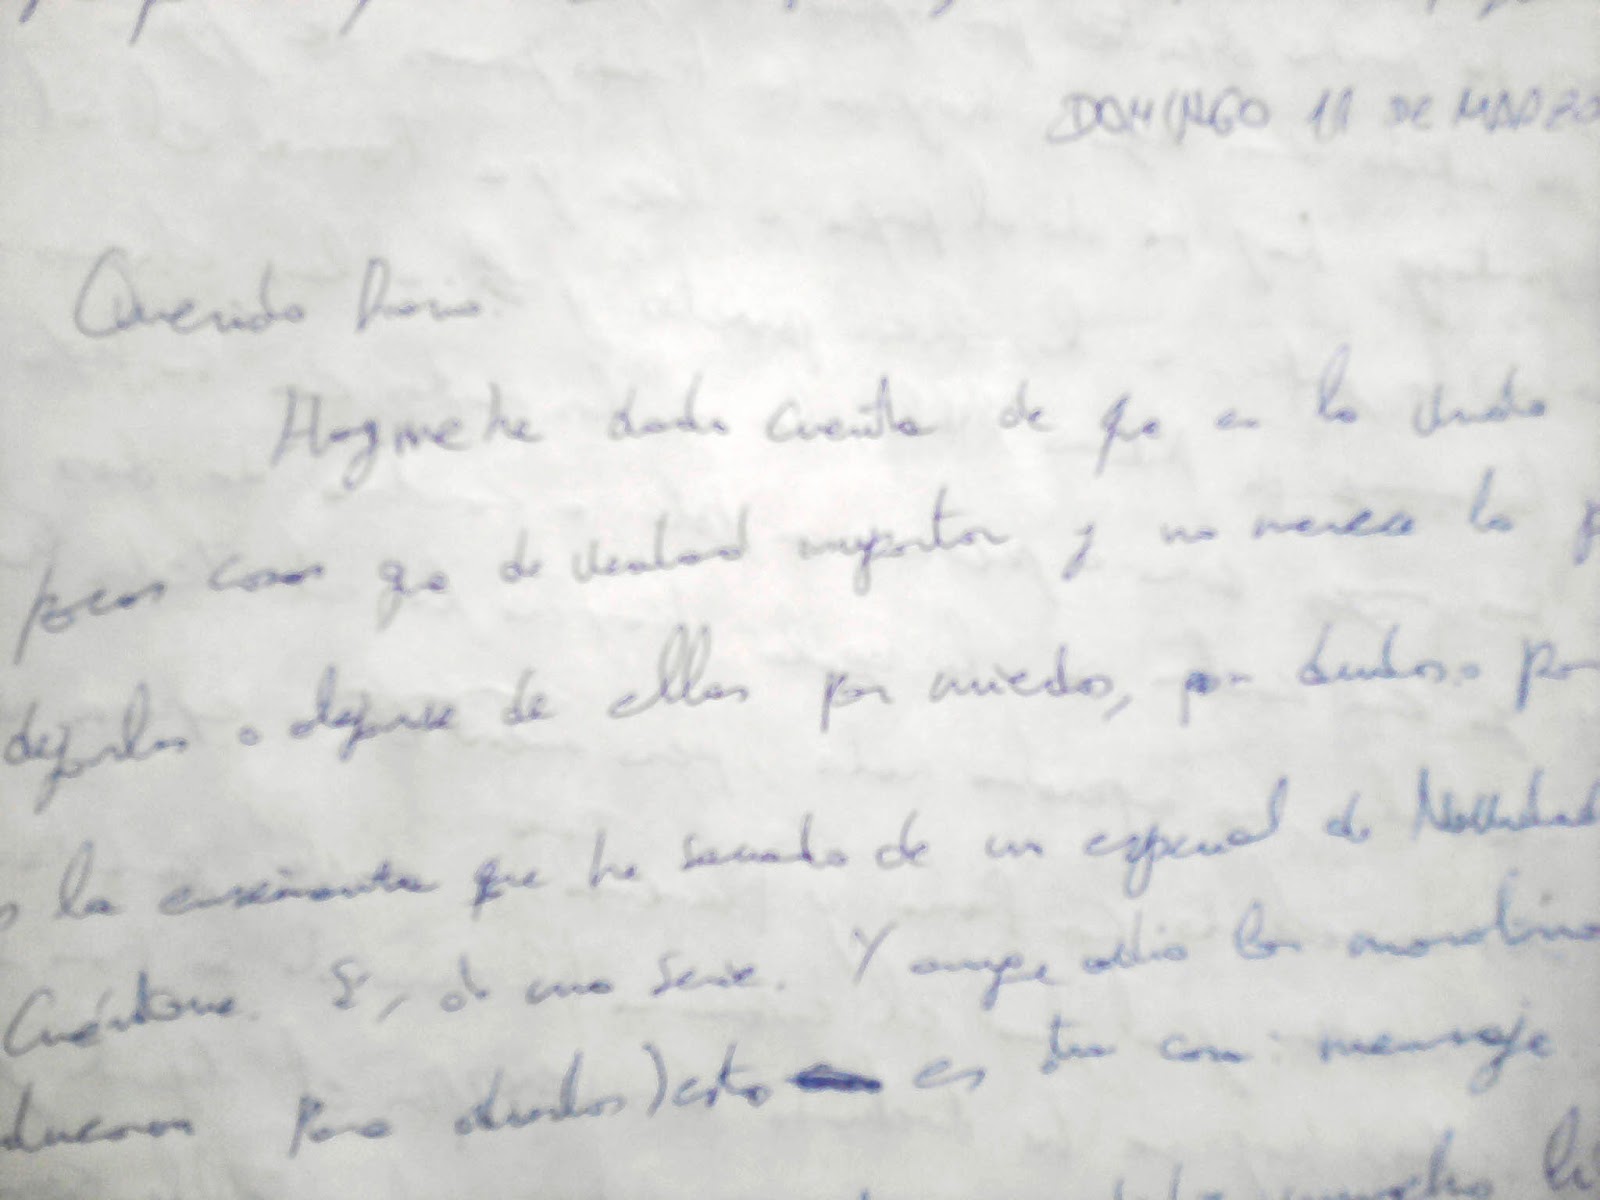 DOMINGO 11 DE MARZO
Querido Diario.
Hoy me he dado cuenta de que en la vida
pocas cosas que de verdad importan y no merece la p
dejarlas o alejarse de ellas por miedos, por dudas o por
la enseñanza que he sacado de un especial de Navidad
Cuéntame. Sí, de una serie. Y aunque odio las moralina
para adultos) esto es tan con mensaje
mucho